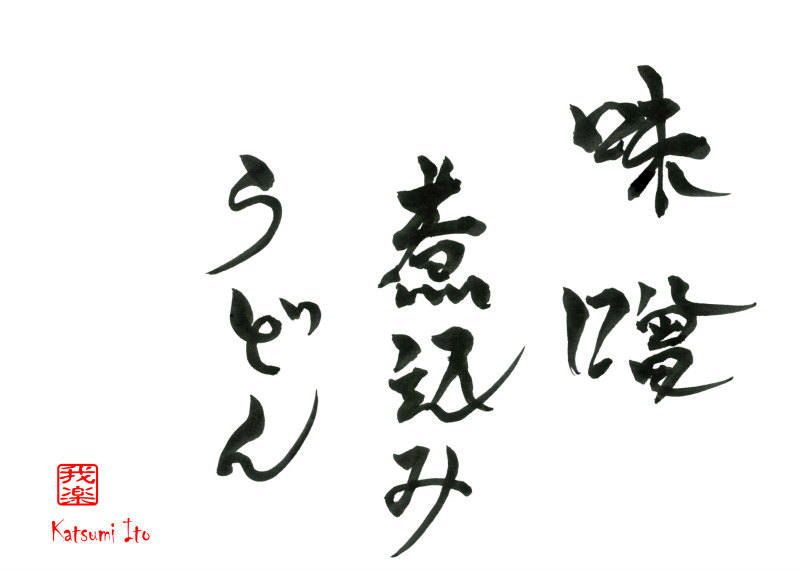 味噌
煮込み
うどん
我楽
Katsumi Ito